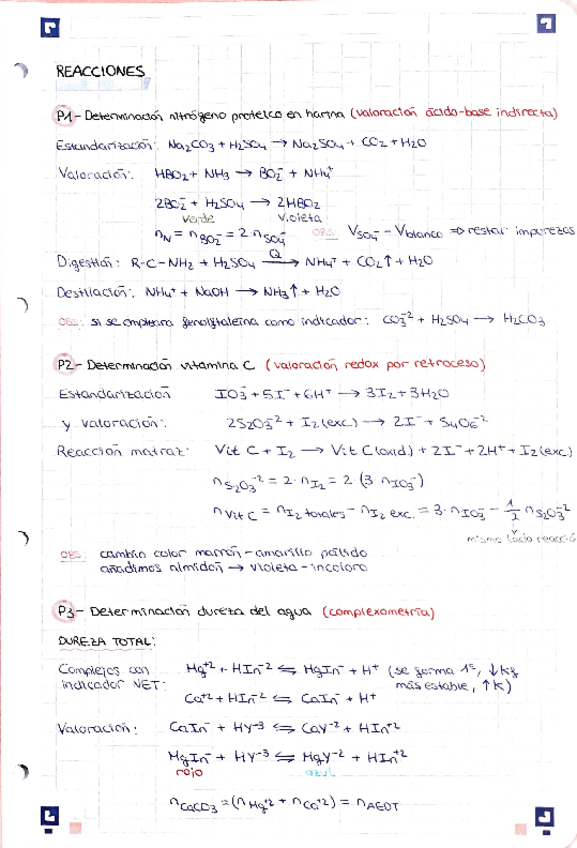 REACCIONES
P1- Determinación nitrógeno proteico en harina (valoración ácido-base indirecta)
Estandarización: Na2CO3 + H2SO4 → Na2SO4 + CO2 + H2O
Valoración: HBO2 + NH3 → BO2⁻ + NH4⁺
2BO2⁻ + H2SO4 → 2HBO2
verde violeta
nN = nBO2⁻ = 2·nSO4⁻ OBS: VSO4⁻ - Vblanco ⇒ restar impurezas
Digestión: R-C-NH2 + H2SO4 —Q→ NH4⁺ + CO2↑ + H2O
Destilación: NH4⁺ + NaOH → NH3↑ + H2O
OBS: si se empleara fenolftaleína como indicador: CO3⁻² + H2SO4 → H2CO3
P2- Determinación vitamina C (valoración redox por retroceso)
Estandarización IO3⁻ + 5I⁻ + 6H⁺ → 3I2 + 3H2O
y valoración: 2S2O3⁻² + I2(exc) → 2I⁻ + S4O6⁻²
Reacción matraz: Vit C + I2 → Vit C(oxid) + 2I⁻ + 2H⁺ + I2(exc)
nS2O3⁻² = 2·nI2 = 2(3·nIO3⁻)
nVit C = nI2 totales - nI2 exc. = 3·nIO3⁻ - 1/2 nS2O3⁻²
mismo lado reacció
OBS: cambio color marrón-amarillo pálido
añadimos almidón → violeta-incoloro
P3- Determinación dureza del agua (complexometría)
DUREZA TOTAL:
Complejos con Mg⁺² + HIn⁻² ⇆ MgIn⁻ + H⁺ (se forma 1º, ↓kf
indicador NET: más estable, ↑K)
Ca⁺² + HIn⁻² ⇆ CaIn⁻ + H⁺
Valoración: CaIn⁻ + HY⁻³ ⇆ CaY⁻² + HIn⁺²
MgIn⁻ + HY⁻³ ⇆ MgY⁻² + HIn⁺²
rojo azul
nCaCO3 = (nMg⁺² + nCa⁺²) = nAEDT